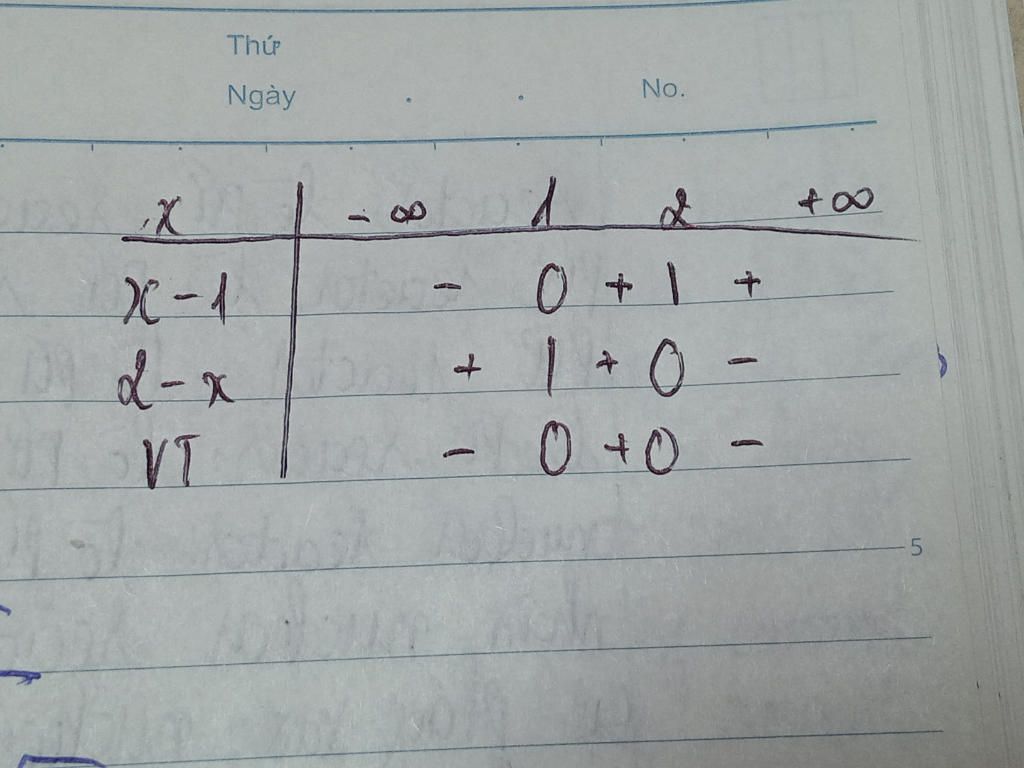 Thứ
Ngày . . No.
x - ∞ 1 2 + ∞
x - 1 - 0 + 1 +
2 - x + 1 + 0 -
VT - 0 + 0 -
5